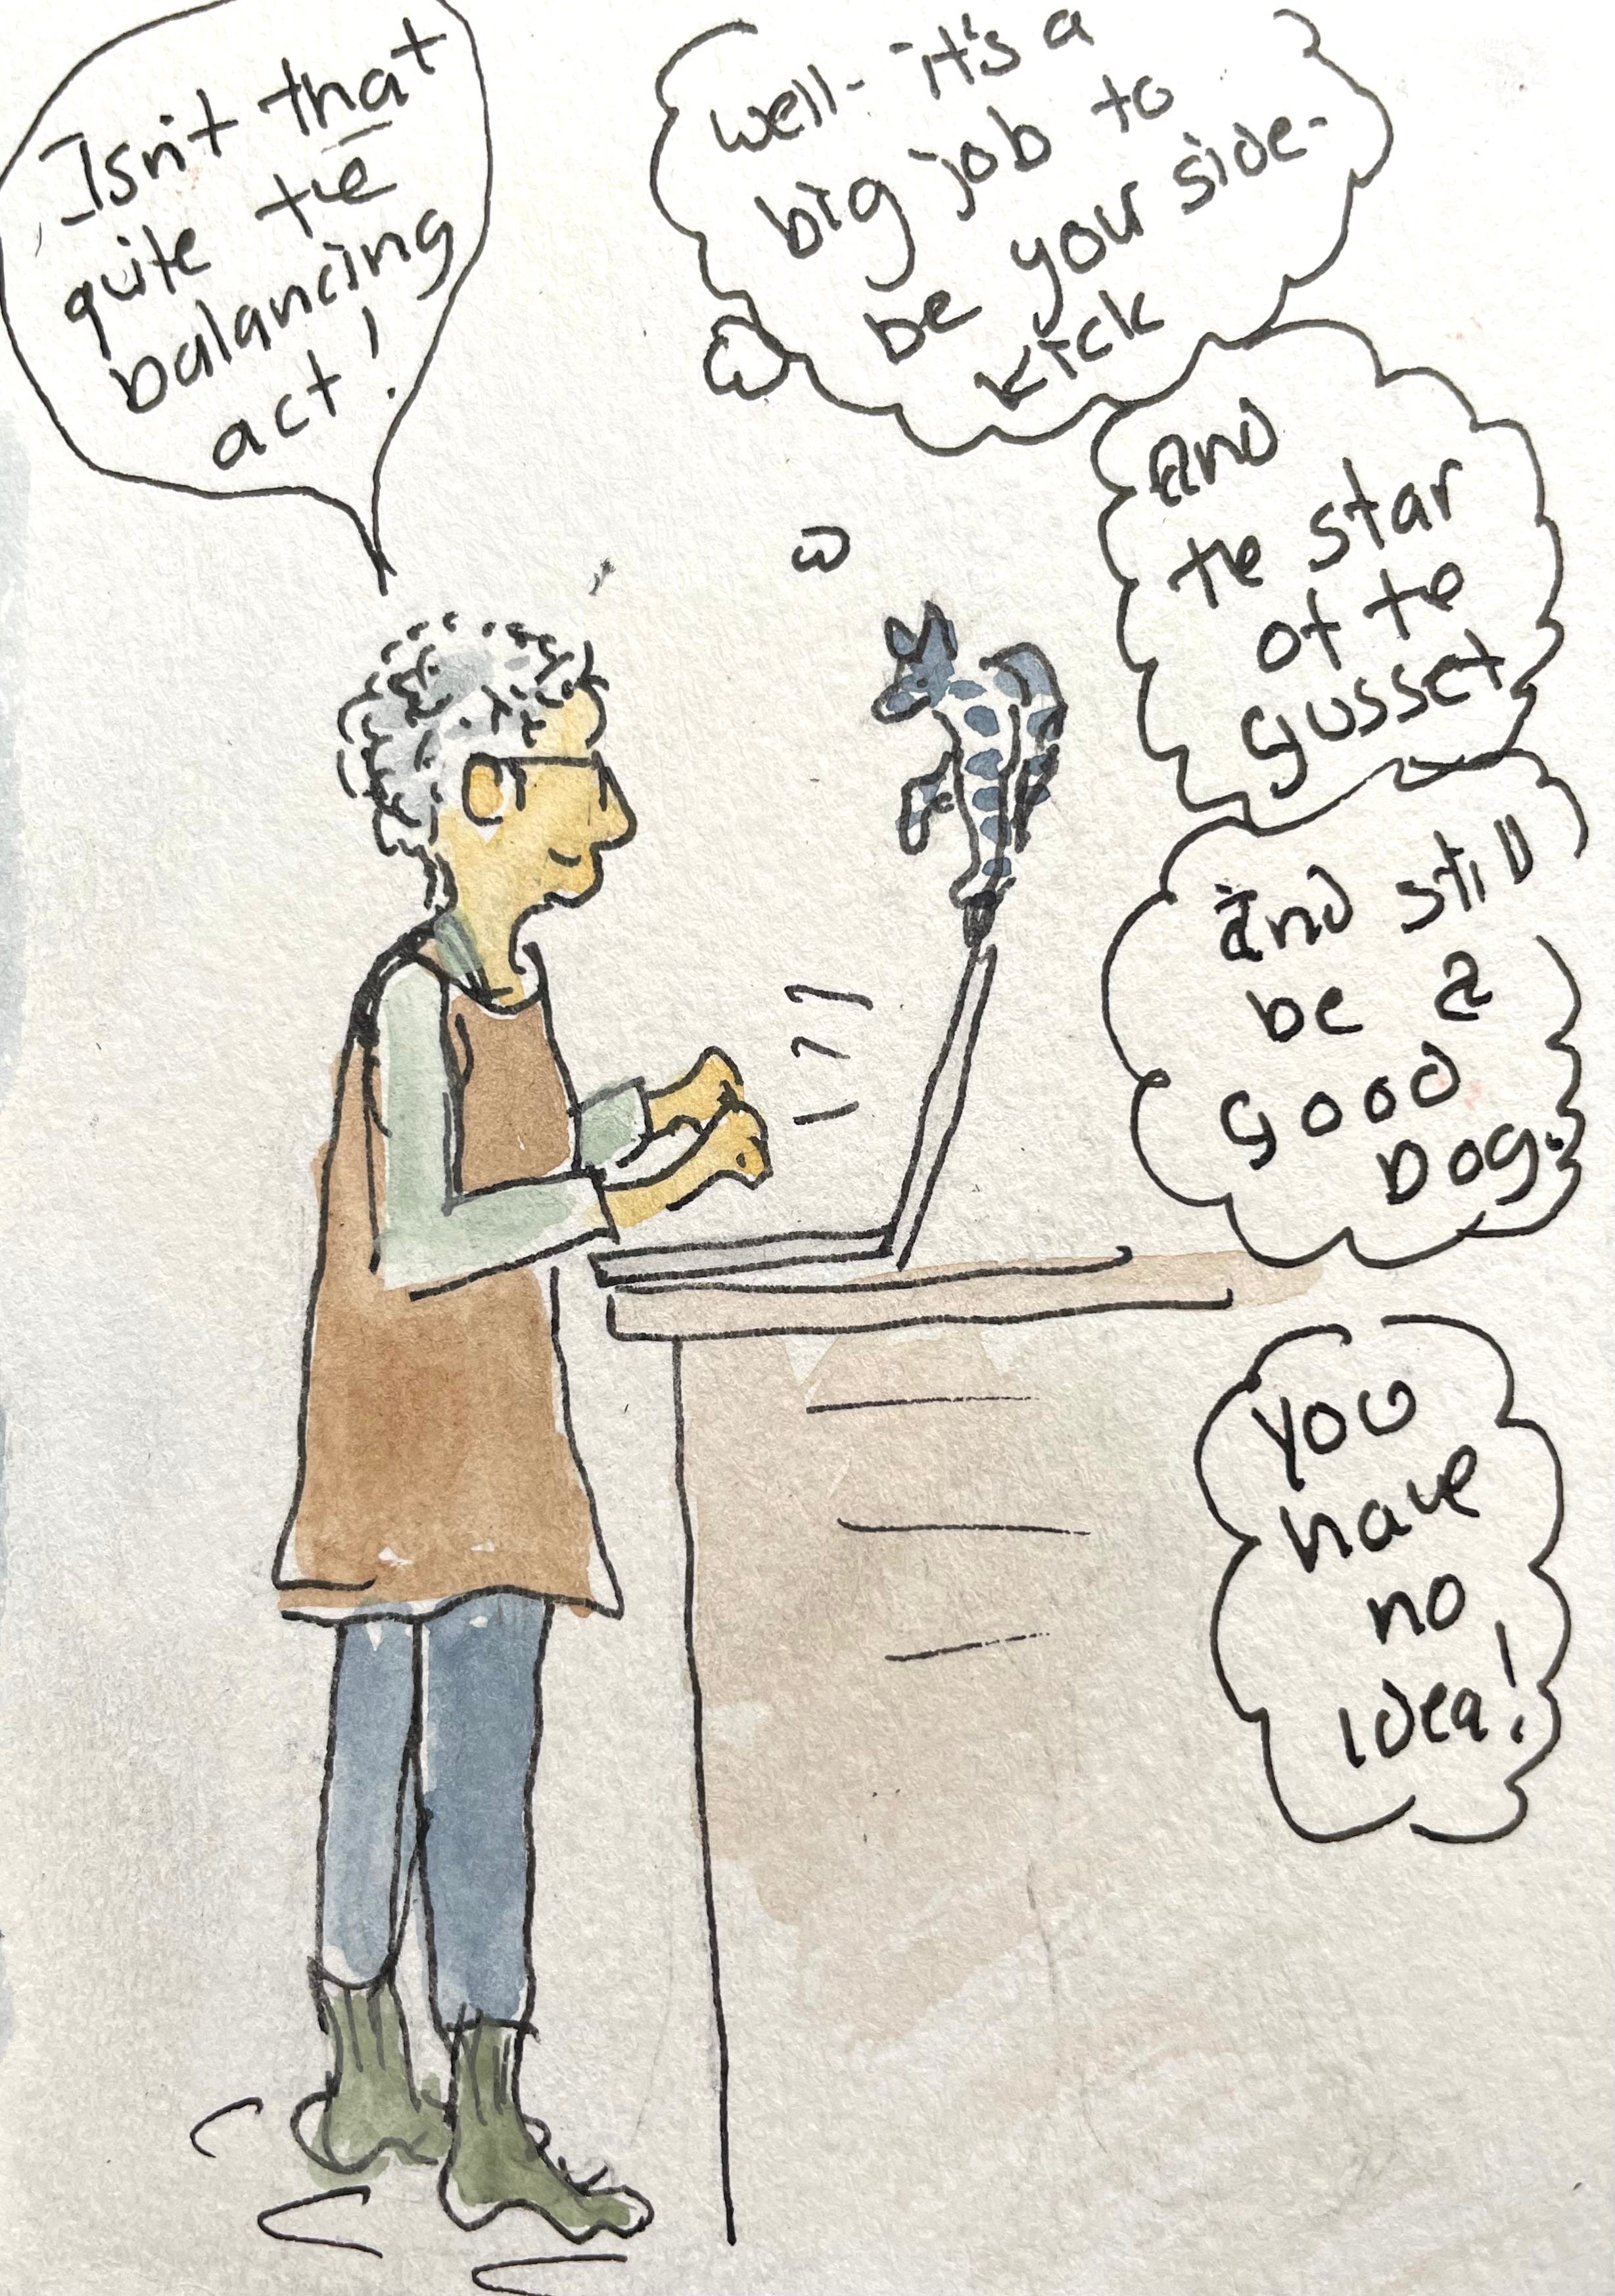 Isn't that
quite te
balancing
act!
well- it's a
big job to
be your side-
kick
and
te star
of te
gusset
and still
be a
good
dog.
you
have
no
idea!